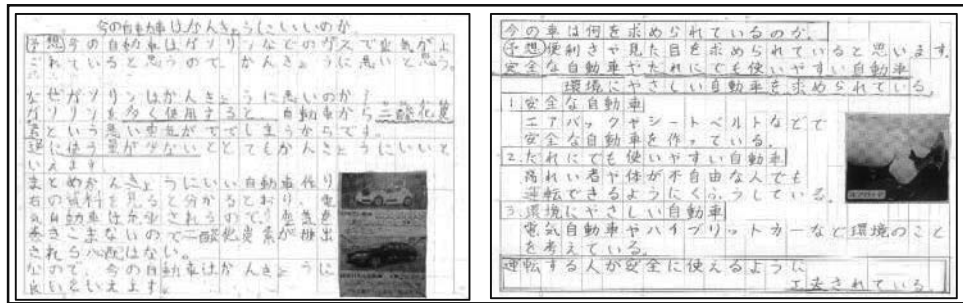 今の自動車はかんきょうにいいのか
予想今の自動車はガソリンなどのガスで空気がよ
ごれていると思うので、かんきょうに悪いと思う。
なぜガソリンはかんきょうに悪いのか?
ガソリンを多く使用すると、自動車から二酸化炭
素という悪い空気がでてしまうからです。
逆に使う量が少ないととてもかんきょうにいいと
いえます。
まとめかんきょうにいい自動車作り
右の資料を見ると分かるとおり、電
気自動車は
まきこまないので二酸化炭素が排出
される心配はない。
なので、今の自動車はかんきょうに
良いといえます。
今の車は何を求められているのか。
予想便利さや見た目を求められていると思います。
安全な自動車やだれにでも使いやすい自動車
環境にやさしい自動車を求められている。
1.安全な自動車
エアバックやシートベルトなどで
安全な自動車を作っている。
2.だれにでも使いやすい自動車
高れい者や体が不自由な人でも
運転できるようにくふうしている。
3.環境にやさしい自動車
電気自動車やハイブリットカーなど環境のこと
を考えている。
運転する人が安全に使えるように
工夫されている。